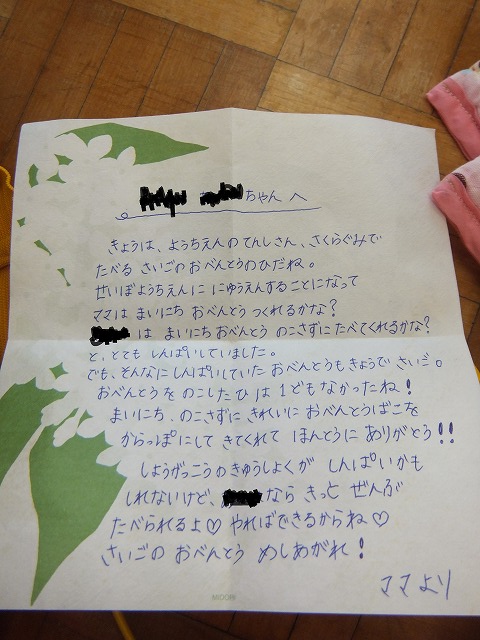 ちゃん へ
きょうは、ようちえんのてんしさん、さくらぐみで
たべる さいごのおべんとうのひだね。
せいぼようちえんに にゅうえんすることになって
ママは まいにち おべんとう つくれるかな?
は まいにちおべんとう のこさずにたべてくれるかな?
と、とても しんぱいしていました。
でも、そんなにしんぱいしていた おべんとうもきょうで さいご。
おべんとうを のこしたひは 1どもなかったね!
まいにち、のこさずに きれいに おべんとうばこを
からっぽにして きてくれて ほんとうに ありがとう!!
しょうがっこうのきゅうしょくが しんぱいかも
しれないけど、 なら きっと ぜんぶ
たべられるよ♡ やればできるからね♡
さいごの おべんとう めしあがれ!
ママより
MIDORI